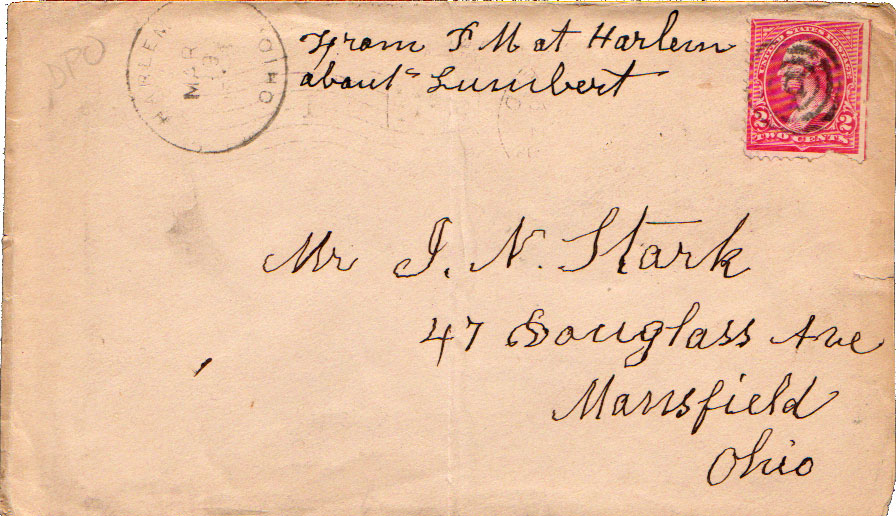 From P M at Harlem
about Lumbert
HARLEM OHIO
MAR
UNITED STATES POSTAGE
2 2
TWO CENTS
Mr I. N. Stark
47 Douglass Ave
Mansfield
Ohio